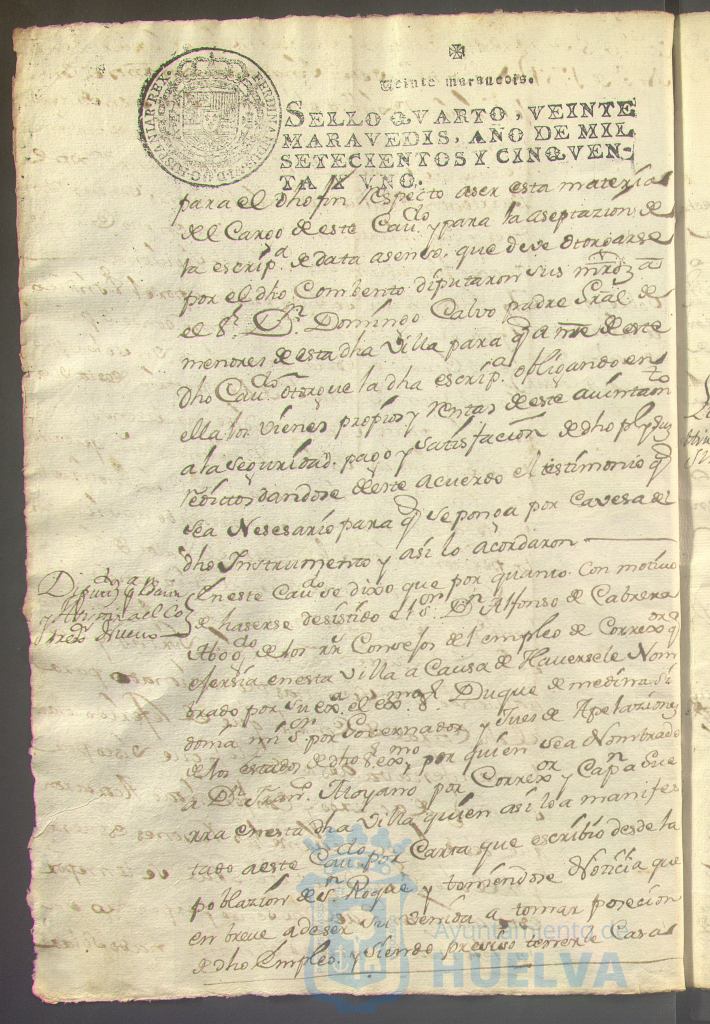 FERDINANDUS VI D G HISPANIAR REX
Veinte marauedis.
SELLO QVARTO, VEINTE
MARAVEDIS, AÑO DE MIL
SETECIENTOS Y CINQVEN-
TA Y VNO.
para el dho fin Respecto aser esta materia
del Cargo de este Cavdo. y para la aseptazion de
la escripa. de data asenso. que deve otorgarse
por el dho Combento diputaron sus mrdz a
el Sr. Dn. Domingo Calvo padre Gral de
menores de esta dha Villa para q a nre de este
dho Cavdo. otorgue la dha escripa. obligando en
ella los vienes propios y Rentas de este aiuntamto
a la seguridad, pago y satisfacion de dho pl y sus
Reditos dandose de este acuerdo el testimonio q
sea Nesesario para q se ponga por Cavesa del
dho Instrumento y asi lo acordaron
Diputn. a Dar
Corrdor. Nuevo
En este Cavdo se dixo que por quanto Con motivo
de haserse desistido el Sor. Dn. Alfonso de Cabrera
Abogdo. de los Rs Consejos del empleo de Correxor q
ejersia en esta Villa a Causa de Haversele Nom
brado por su exa. el exmo. Sr. Duque de medina Si
donia mi Sr. por Governador y Jues de Apelaziones
de los estados de dho Sr. exmo. por quien sea Nombrado
a Dn. Frano. Moyano por Correxor y Capn. a Gue
rra en esta dha Villa quien asi lo a manifes
tado a este Cavdo por Carta que escribio desde la
poblazion de Sn. Roque y teniendose Noticia que
en breve a de ser su venida a tomar posecion
de dho Empleo. y siendo presiso tenerle Casa
Ayuntamiento de
HUELVA